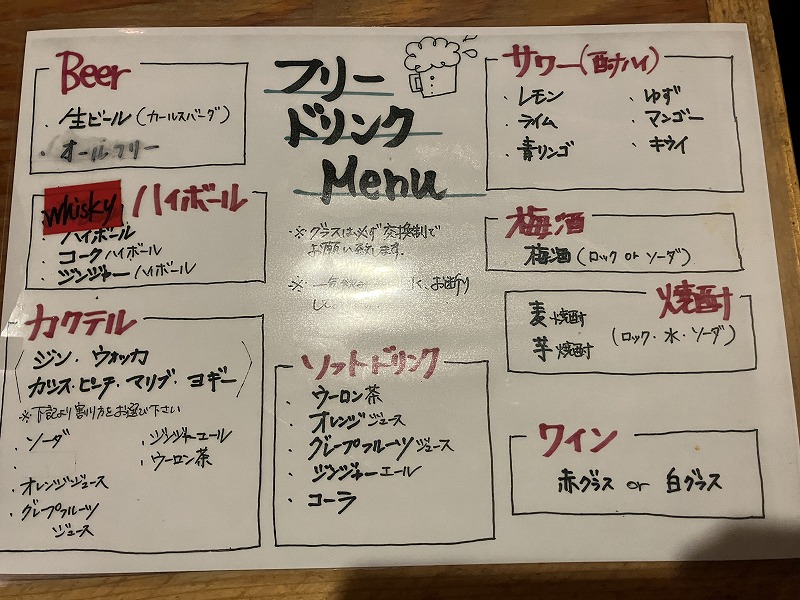 フリー
ドリンク
Menu
※グラスは必ず交換制で
お願い致します。
※ お断り
Beer
・生ビール(カールスバーグ)
・オールフリー
Whisky ハイボール
・ハイボール
・コークハイボール
・ジンジャーハイボール
カクテル
ジン・ウォッカ
カシス・ピーチ・マリブ・ヨギー
※下記より割り方をお選び下さい
・ソーダ
・オレンジジュース
・グレープフルーツ
ジュース
・ジンジャーエール
・ウーロン茶
ソフトドリンク
・ウーロン茶
・オレンジジュース
・グレープフルーツジュース
・ジンジャーエール
・コーラ
サワー(酎ハイ)
・レモン
・ライム
・青リンゴ
・ゆず
・マンゴー
・キウイ
梅酒
梅酒(ロック or ソーダ)
焼酎
麦焼酎
芋焼酎
(ロック・水・ソーダ)
ワイン
赤グラス or 白グラス